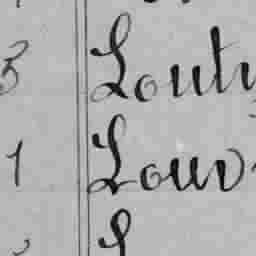 3 Louty
1 Louv